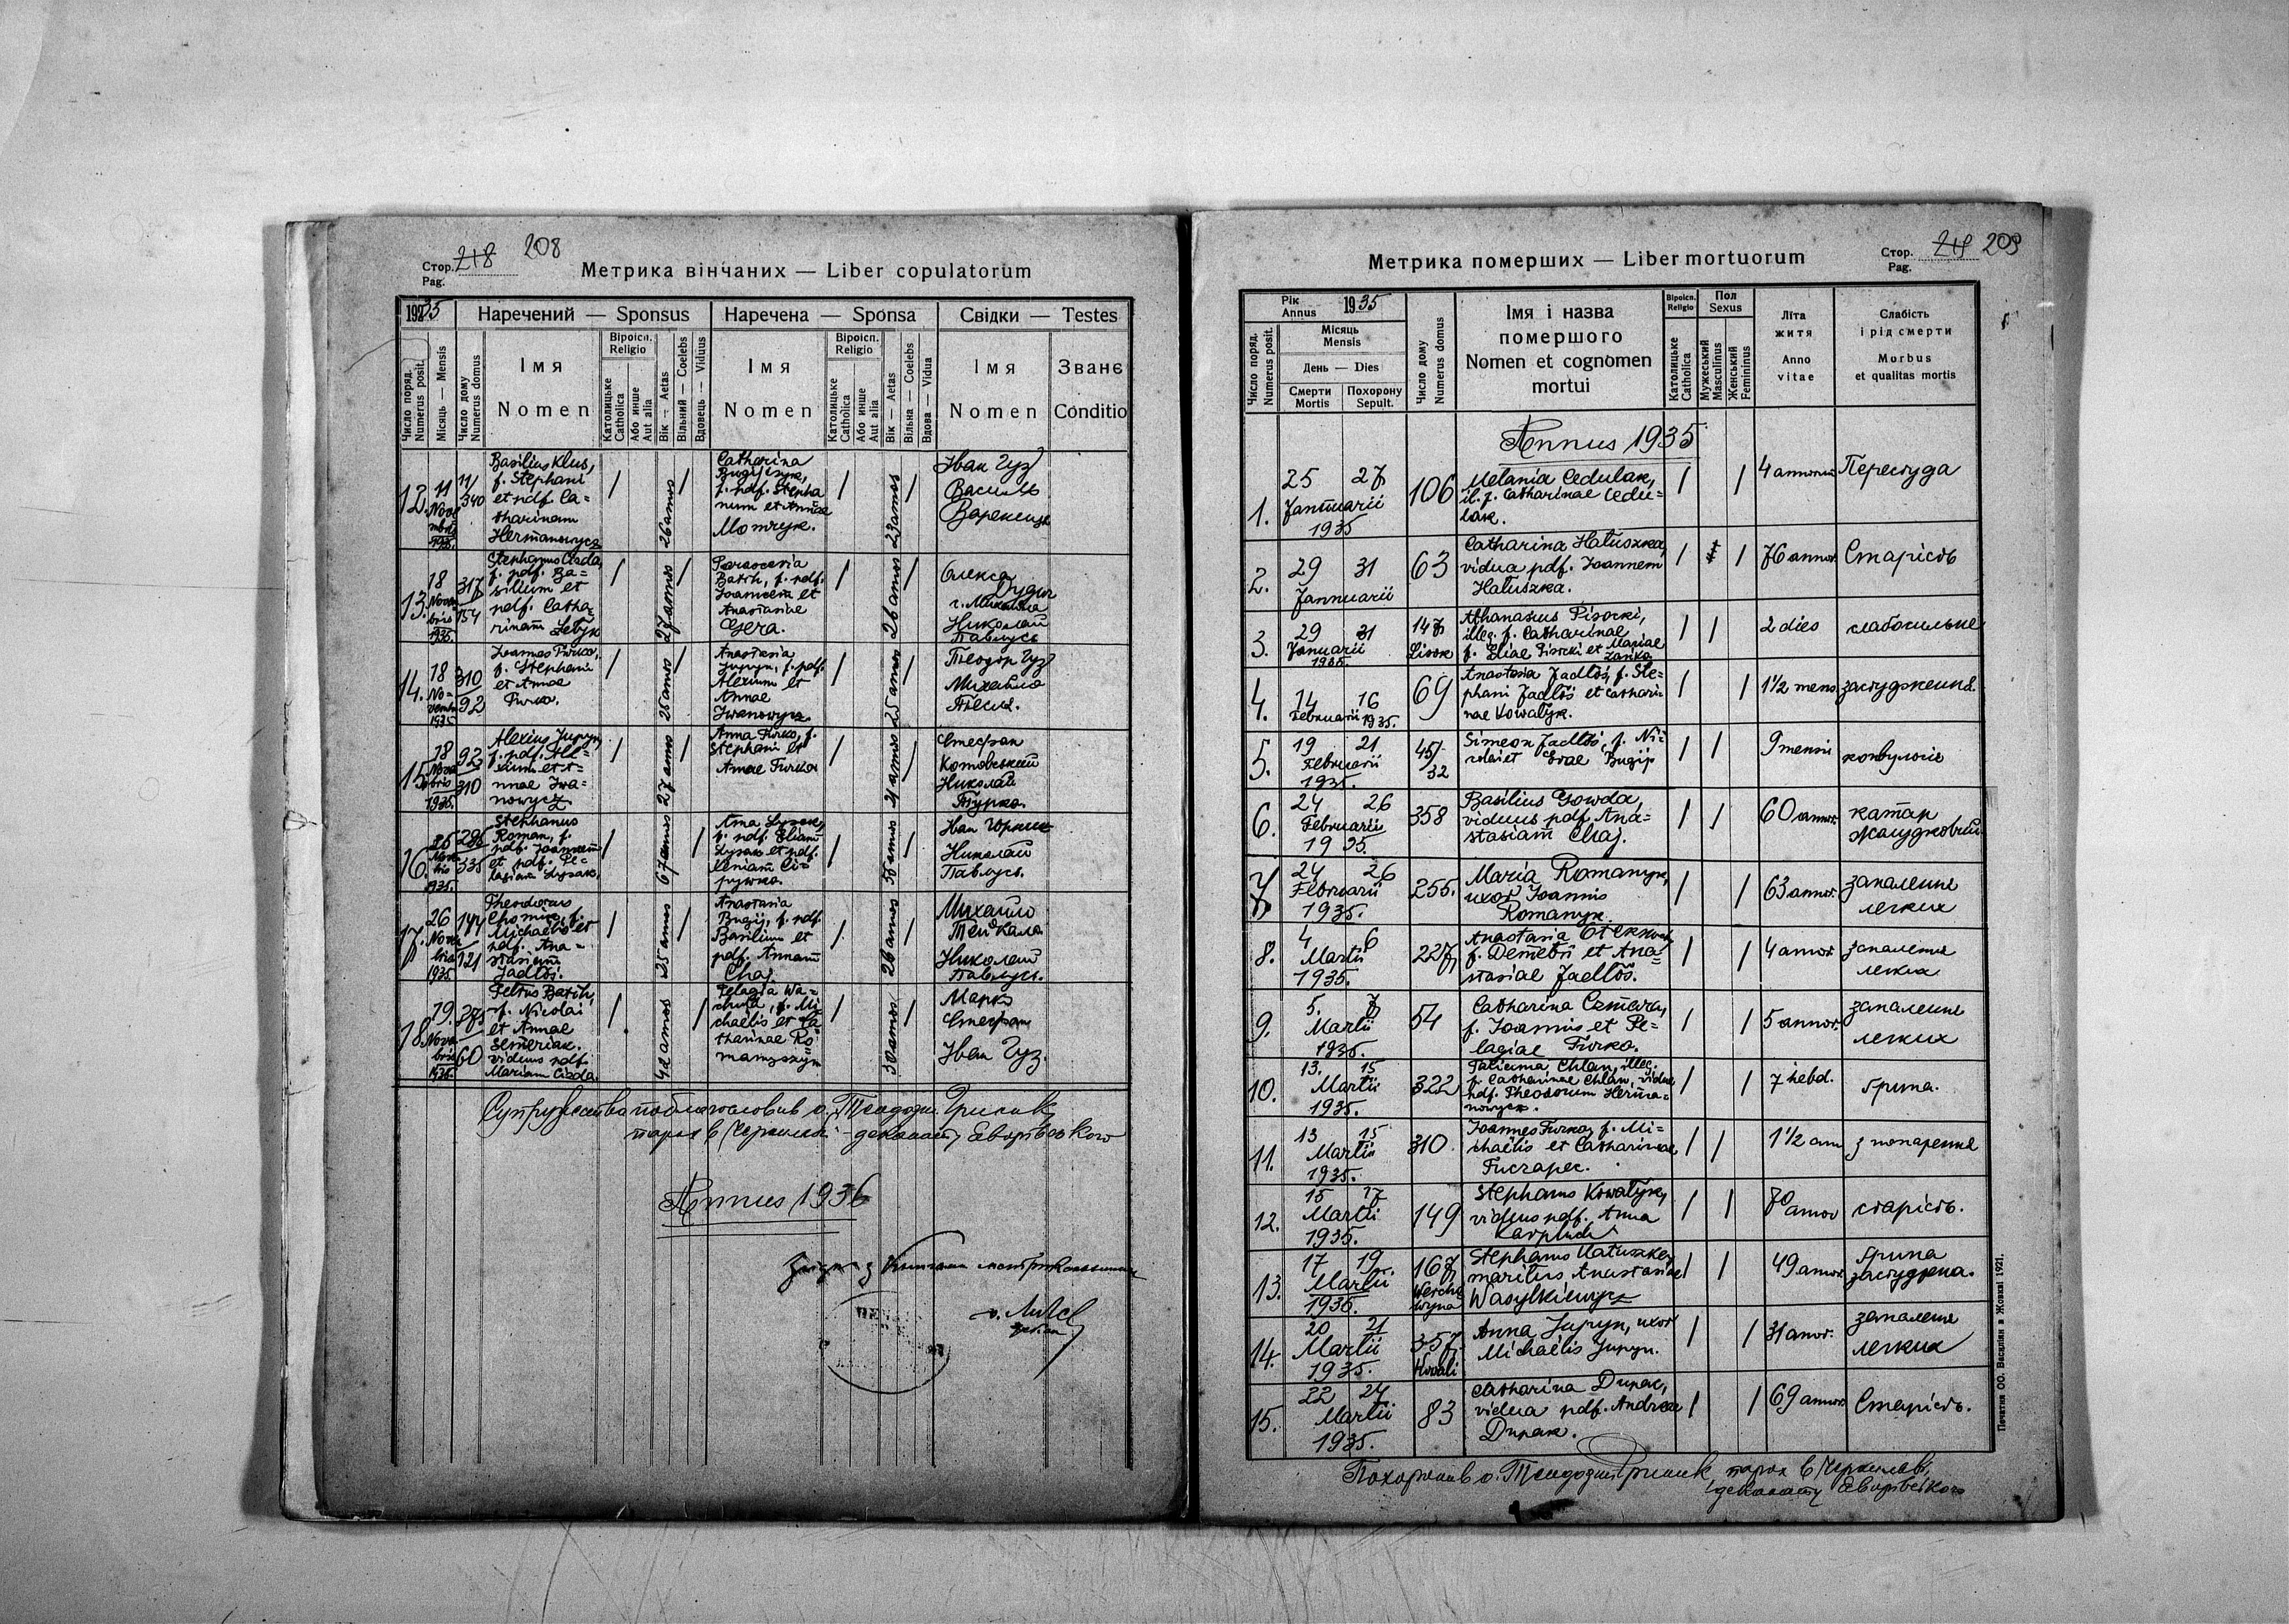 Стор. 218 208
Pag.
Метрика вінчаних — Liber copulatorum
1935
Наречений — Sponsus
Наречена — Sponsa
Свідки — Testes
Число поряд. Numerus posit.
Місяць — Mensis
Число дому Numerus domus
Імя
Nomen
Віроісп. Religio
Католицьке Catholica
Або инше Aut alia
Вік — Aetas
Вільний — Coelebs
Вдовець — Viduus
Імя
Nomen
Віроісп. Religio
Католицьке Catholica
Або инше Aut alia
Вік — Aetas
Вільна — Coelebs
Вдова — Vidua
Імя
Nomen
Званє
Conditio
12. 11 Novembris 1935. 11/340
Basilius Klus,
f. Stephani
et pdf. Ca=
tharinam
Hermanowycz
26 annos
Catharina
f. pdf. Stepha
num et Annae
23 annos
Іван Гуз
Василь
13. 18 Novembris 1935. 317/154
Stephanus Cizda,
f. pdf. Ba=
silium et
pdf. Catha=
rinam
27 annos
Parascevia
Batih, f. pdf.
Joannem et
Anastasiae
Gera.
26 annos
Олекса
Николай
Павлусь
14. 18 Novembris 1935. 310/92
Joannes Furko,
f. Stephani
et Annae
Furko.
25 annos
Anastasia
Jupyn, f. pdf.
Alexium et
Annae
Iwanowycz.
25 annos
Теодор Гуз
Михайло
15. 18 Novembris 1935. 92/310
Alexius Jupyn,
f. pdf. Ale=
xium et A=
nnae Iwa=
nowycz.
27 annos
Anna Furko, f.
Stephani et
Annae Furko
21 annos
Стефан
Котовський
Николай
Фурко.
16. 25 Novembris 1935. 286/335
Stephanus
Roman, f.
pdf. Joannem
et pdf. Pe=
lagiam Lysak.
67 annos
Anna Lysak,
f. pdf. Eliam
Lysak et pdf.
Xeniam Ci=
55 annos
Николай
Павлусь.
17. 26 Novembris 1935. 144/121
Theodorus
f.
Michaelis et
pdf. Ana=
stasiam
Jadłoś.
25 annos
Anastasia
Bugij, f. pdf.
Basilium et
pdf. Annam
Chaj.
26 annos
Михайло
Николай
Павлусь.
18. 19. Novembris 1935. 375/60
Petrus Batih,
f. Nicolai
et Annae
Semeriak.
viduus pdf.
Mariam Cizda.
42 annos
Pelagia Wa=
chula, f. Mi
chaëlis et Ca=
tharinae Ro
manyszyn
30 annos
Марко
Стефан
Іван Гуз.
Супружества поблагословив о. Теодозій
парох в деканату Яворівського
Annus 1936
о.
декан
Стор. 219 209
Pag.
Метрика померших — Liber mortuorum
Рік Annus 1935
Число поряд. Numerus posit.
Місяць Mensis
День — Dies
Смерти Mortis
Похорону Sepult.
Число дому Numerus domus
Імя і назва
помершого
Nomen et cognomen
mortui
Віроісп. Religio
Католицьке Catholica
Пол Sexus
Мужеський Masculinus
Женський Femininus
Літа
житя
Anno
vitae
Слабість
і рід смерти
Morbus
et qualitas mortis
Annus 1935
1. 25 27 Januarii 1935 106
Melania Cedulak,
il. f. Catharinae Cedu=
lak.
4 annorum Перестуда
2. 29 31 Januarii 63
Catharina Hałuszka,
vidua pdf. Joannem
Hałuszka.
76 annor. Старість
3. 29 31 Januarii 1935. 147 Lisok
Athanasius Pisocki,
illeg. f. Catharinae
f. Eliae Pisocki et Mariae
2 dies слабосильне
4. 14 16 Februarii 1935. 69
Anastasia Jadłoś, f. Ste=
phani Jadłoś et Cathari=
nae Kowałyk.
1½ mens. застудженнє.
5. 19 21 Februarii 1935. 45/32
Simeon Jadłoś, f. Ni=
colai et Evae Bugij
9 mensi конвульсіє
6. 24 26 Februarii 1935. 358
Basilius Gowda,
viduus pdf. Ana=
stasiam Chaj.
60 annor. катар
жолудковий
7. 24 26 Februarii 1935. 255.
Maria Romanyk,
uxor Joannis
Romanyk.
63 annor. запаленнє
легких
8. 4 6 Martii 1935. 227
Anastasia
f. Demetrii et Ana=
stasiae Jadłoś.
4 annor. запаленнє
легких
9. 5. 7 Martii 1935. 54
Catharina
f. Joannis et Pe=
lagiae Furko.
5 annor. запаленнє
легких
10. 13. 15 Martii 1935. 322
Chlan, illeg.
f. Catharinae Chlan, vidua
pdf. Theodorum Herma=
nowycz.
7 hebd. гріпа.
11. 13 15 Martii 1935. 310
Joannes Furko, f. Mi=
chaëlis et Catharinae
1½ ann з попарення
12. 15 17 Martii 1935. 149
Stephanus Kowałyk,
viduus pdf. Anna
70 annor старість.
13. 17 19 Martii 1935. 167
Stephanus Hałuszka,
maritus Anastasiae
Wasylkiewycz
49 annor. гріпа
14. 20 21 Martii 1935. 357. Kowali
Anna Jupyn, uxor
Michaëlis Jupyn.
31 annor. запаленнє
легких
15. 22 24 Martii 1935. 83
Catharina Dupak,
vidua pdf. Andreae
Dupak.
69 annor Старість.
Похоронив о. Теодозій парох в
деканату Яворівського
Печатня ОО. Василіян в Жовкві 1921.